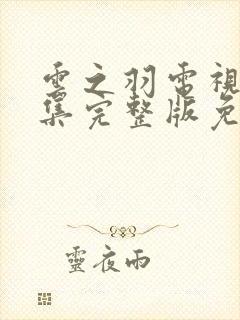 雲之羽電視
集完整版免
靈夜雨